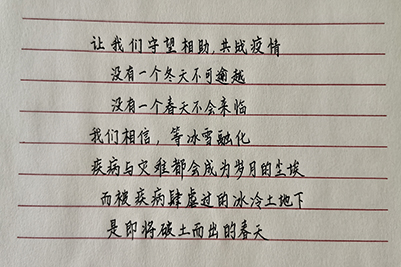 让我们守望相助,共战疫情
没有一个冬天不可逾越
没有一个春天不会来临
我们相信，等冰雪融化
疾病与灾难都会成为岁月的尘埃
而被疾病肆虐过的冰冷土地下
是即将破土而出的春天